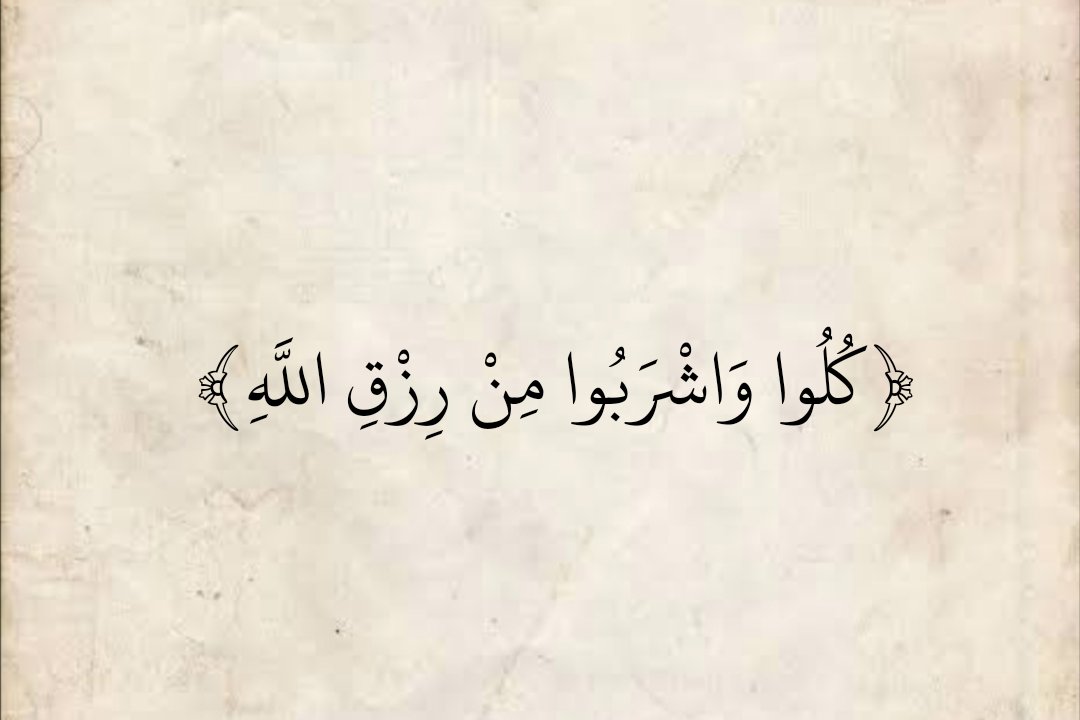 ﴿كُلُوا وَاشْرَبُوا مِنْ رِزْقِ اللَّهِ﴾